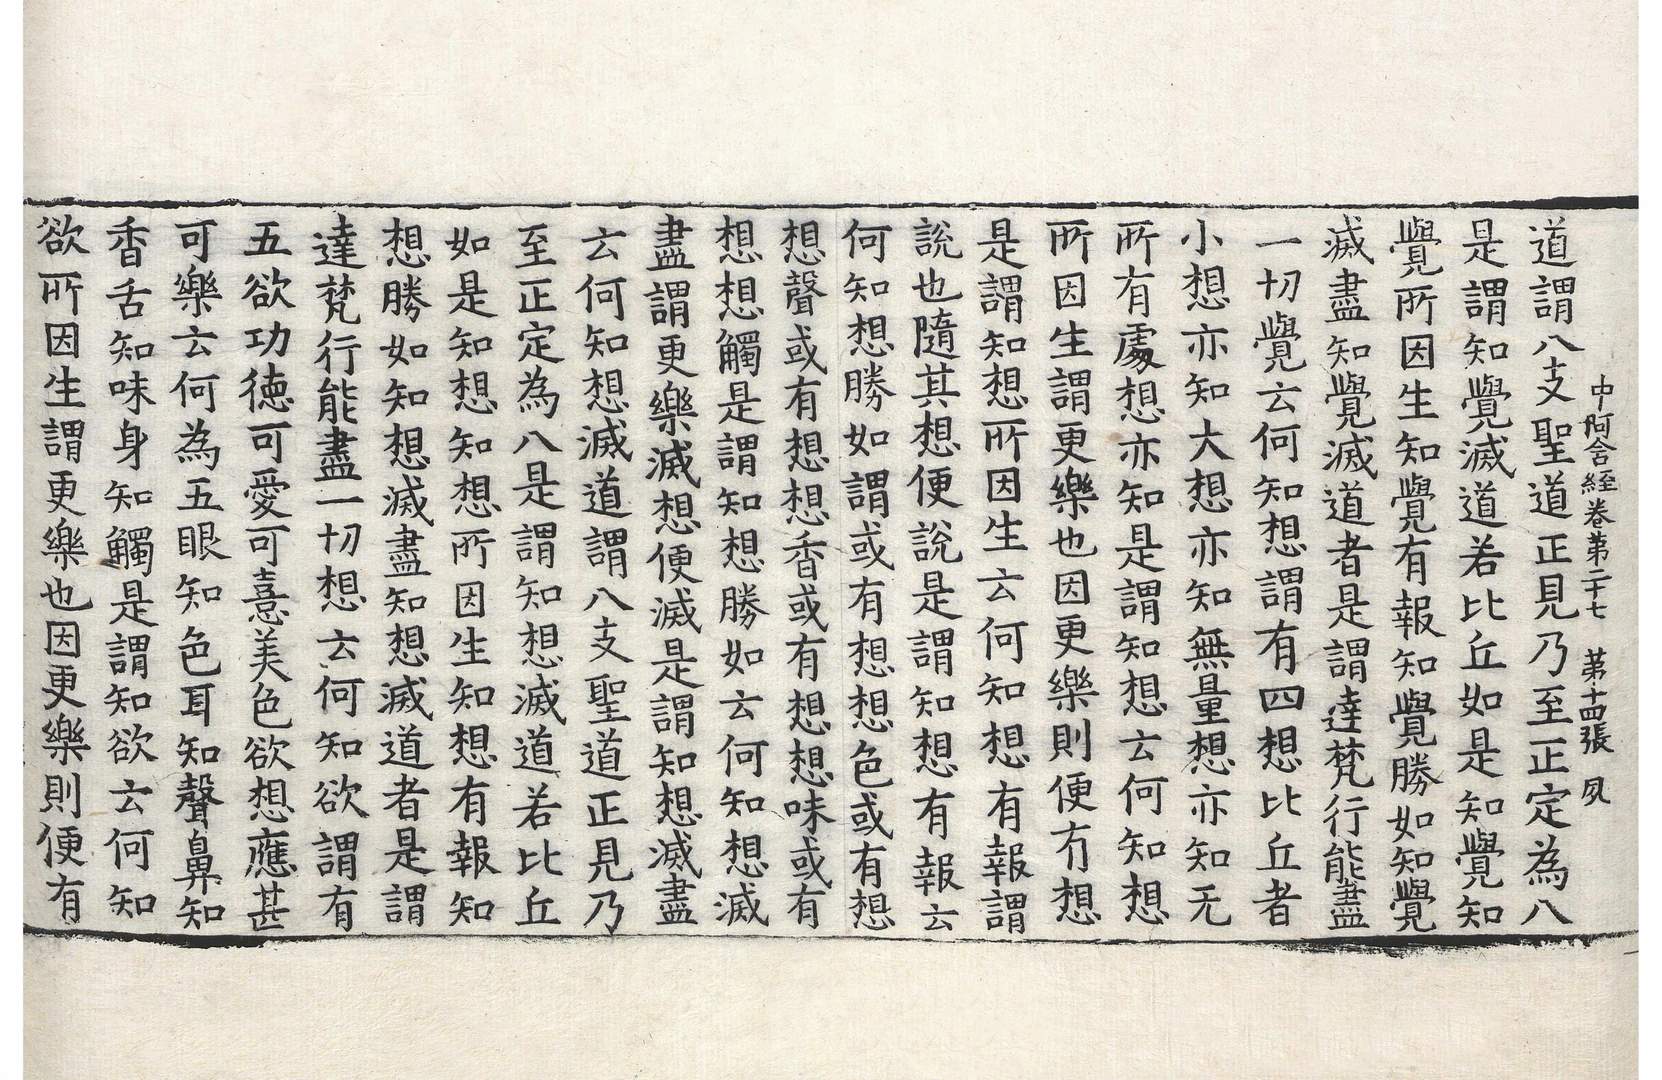 中阿含經卷第二十七 第十四張 夙
道謂八支聖道正見乃至正定為八
是謂知覺滅道若比丘如是知覺知
覺所因生知覺有報知覺勝如知覺
滅盡知覺滅道者是謂達梵行能盡
一切覺云何知想謂有四想比丘者
小想亦知大想亦知無量想亦知无
所有處想亦知是謂知想云何知想
所因生謂更樂也因更樂則便有想
是謂知想所因生云何知想有報謂
說也隨其想便說是謂知想有報云
何知想勝如謂或有想想色或有想
想聲或有想想香或有想想味或有
想想觸是謂知想勝如云何知想滅
盡謂更樂滅想便滅是謂知想滅盡
云何知想滅道謂八支聖道正見乃
至正定為八是謂知想滅道若比丘
如是知想知想所因生知想有報知
想勝如知想滅盡知想滅道者是謂
達梵行能盡一切想云何知欲謂有
五欲功德可愛可憙美色欲想應甚
可樂云何為五眼知色耳知聲鼻知
香舌知味身知觸是謂知欲云何知
欲所因生謂更樂也因更樂則便有